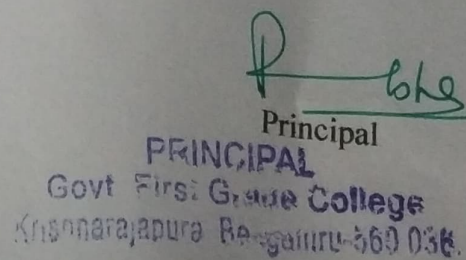 Principal
PRINCIPAL
Govt First Grade College
Krisnnarajapura Bengaluru-560 036.